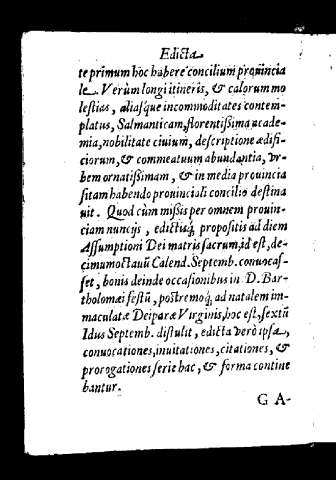 Edicta
te primum hoc habere concilium prouincia
le. Verùm longi itineris, & calorum mo
lestias, aliasque incommoditates contem-
platus, Salmanticam, florentissima acade-
mia, nobilitate ciuium, descriptione ædifi-
ciorum, & commeatuum abundantia, vr-
bem ornatissimam, & in media prouincia
sitam habendo prouinciali concilio destina
uit. Quod cùm missis per omnem prouin-
ciam nuncijs, edictisq́; propositis ad diem
Assumptioni Dei matris sacrum, id est, de-
cimumoctauũ Calend. Septemb. conuocas-
set, bonis deinde occasionibus in D. Bar-
tholomæi festũ, postremoq́; ad natalem im-
maculatæ Deiparæ Virginis, hoc est, sextũ
Idus Septemb. distulit, edicta verò ipsa,
conuocationes, inuitationes, citationes, &
prorogationes serie hac, & forma contine
bantur.
G A-